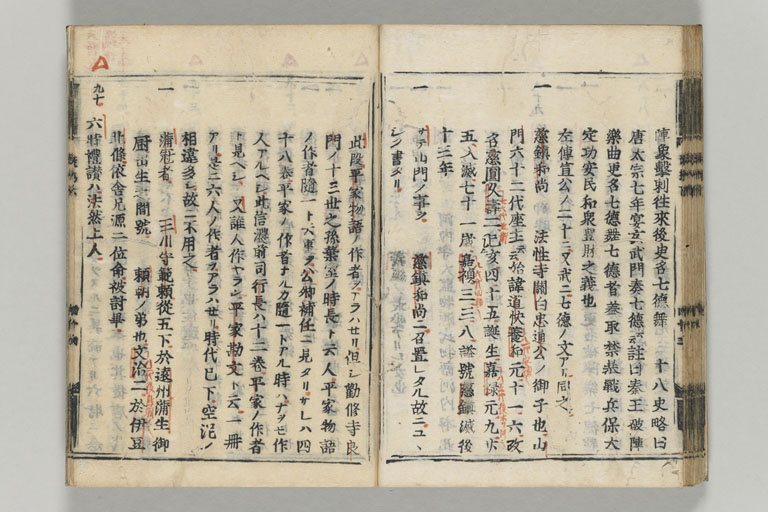 陣象擊刺往來後更名七德舞　十八史略曰
唐太宗七年宴玄武門奏七德云註曰秦王破陣
樂曲更名七德舞七德者蓋取禁暴戢兵保大
定功安民和衆豐財之義也
左傳宣公ノ二十二又武ニ七德ノ文アリ同之
一　慈鎭和尚　法性寺關白忠通公ノ御子也山
門六十二代座主云始諱道快養和元十一六改
名慈圓久壽二乙亥四十五誕生嘉祿元九廿
五入滅七十一歲嘉禎三三八諡號慈鎭滅後
十三年
一　サテ山門ノ事ヲ　慈鎭和尚ニ召置レタル故ニユヽ
シク書ケリ
此段平家物語ノ作者ヲアラハセリ但シ勸修寺良
門ノ十三世之孫葉室ノ時長ト云人平家物語
ノ作者隨一ト云事ヲ公卿補任ニ見タリサレハ四
十八卷平家ノ作者ナル力隨一トアル時ハナヲモ作
人アルヘシ此信濃前司行長ハ十二卷平家ノ作者
ト見ヘシ又誰人作ヤラン平家勘文ト云一冊
アリ是ニ六人ノ作者ヲアラハセリ時代已下空泥ノ
相違多シ故ニ不用之
一　蒲冠者　三川守範賴從五下於遠州蒲生御
厨出生之間號　賴朝ノ弟也文治二於伊豆
北條依舍兄源二位命被討畢
九十　六時禮讃ハ法然上人